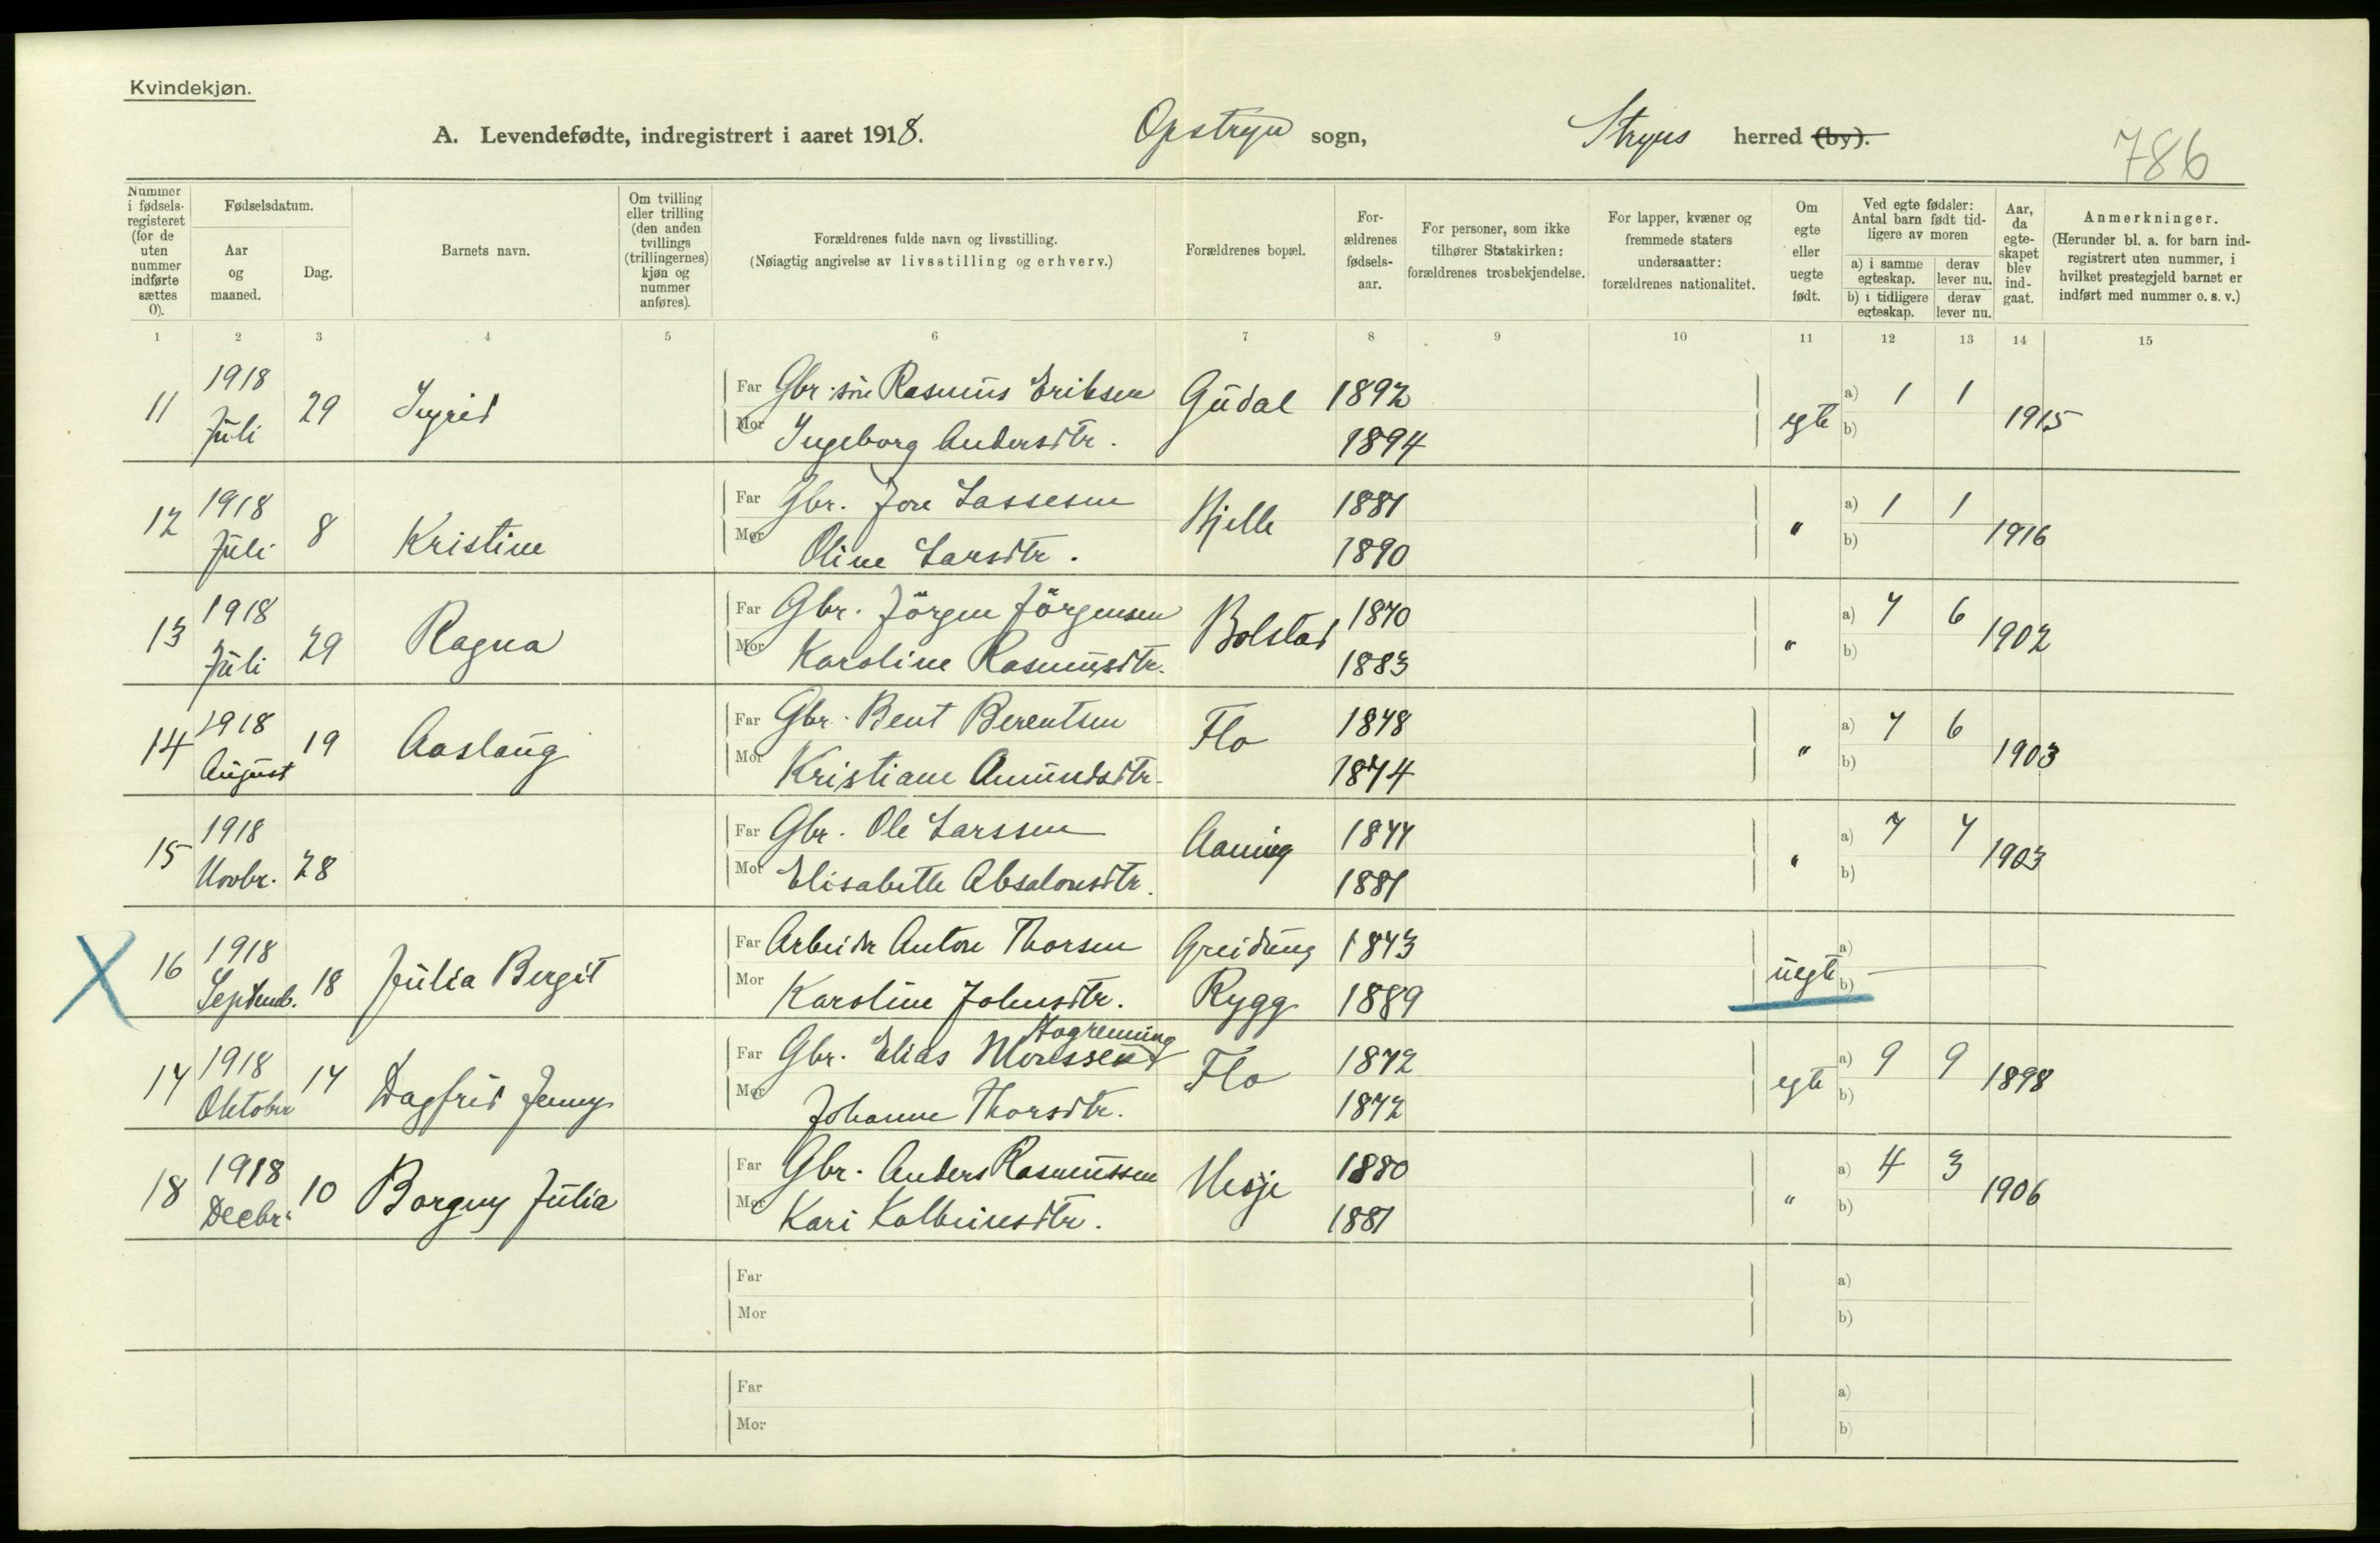 Kvindekjøn.
A. Levendefødte, indregistrert i aaret 1918. Opstryn sogn, Stryns herred (by).
786
Nummer i fødselsregisteret (for de uten nummer indførte sættes 0).
Fødselsdatum.
Aar og maaned.
Dag.
Barnets navn.
Om tvilling eller trilling (den anden tvillings (trillingernes) kjøn og nummer anføres).
Forældrenes fulde navn og livsstilling.
(Nøiagtig angivelse av livsstilling og erhverv.)
Forældrenes bopæl.
Forældrenes fødselsaar.
For personer, som ikke tilhører Statskirken: forældrenes trosbekjendelse.
For lapper, kvæner og fremmede staters undersaatter: forældrenes nationalitet.
Om egte eller uegte født.
Ved egte fødsler: Antal barn født tidligere av moren
a) i samme egteskap. derav lever nu.
b) i tidligere egteskap. derav lever nu.
Aar, da egteskapet blev indgaat.
Anmerkninger.
(Herunder bl. a. for barn indregistrert uten nummer, i hvilket prestegjeld barnet er indført med nummer o. s. v.)
1 2 3 4 5 6 7 8 9 10 11 12 13 14 15
11 1918 Juli 29 Ingrid Far Gbr.søn Rasmus Eriksen Gudal 1892 egte a) 1 1 1915
Mor Ingeborg Andersdtr. 1894 b)
12 1918 Juli 8 Kristine Far Gbr. Jon Lassesen Hjelle 1881 " a) 1 1 1916
Mor Oline Larsdtr. 1890 b)
13 1918 Juli 29 Ragna Far Gbr. Jörgen Jörgensen Bolstad 1870 " a) 7 6 1902
Mor Karoline Rasmusdtr. 1883 b)
14 1918 August 19 Aaslaug Far Gbr. Bent Berentsen Flo 1878 " a) 7 6 1903
Mor Kristiane Amundsdtr. 1874 b)
15 1918 Novbr. 28 Far Gbr. Ole Larssen Aaning 1877 " a) 7 7 1903
Mor Elisabeth Absalonsdtr. 1881 b)
X 16 1918 Septemb. 18 Julia Bergit Far Arbeider Anton Thorsen Greidung 1873 uegte a)
Mor Karoline Johnsdtr. Rygg 1889 b)
17 1918 Oktober 17 Dagfrid Jenny Far Gbr. Elias Monssen Hogrenning Flo 1872 egte a) 9 9 1898
Mor Johanne Thorsdtr. 1872 b)
18 1918 Decbr. 10 Borgny Julia Far Gbr. Anders Rasmussen Mesje 1880 " a) 4 3 1906
Mor Kari Kolbeinsdtr. 1881 b)
Far a)
Mor b)
Far a)
Mor b)